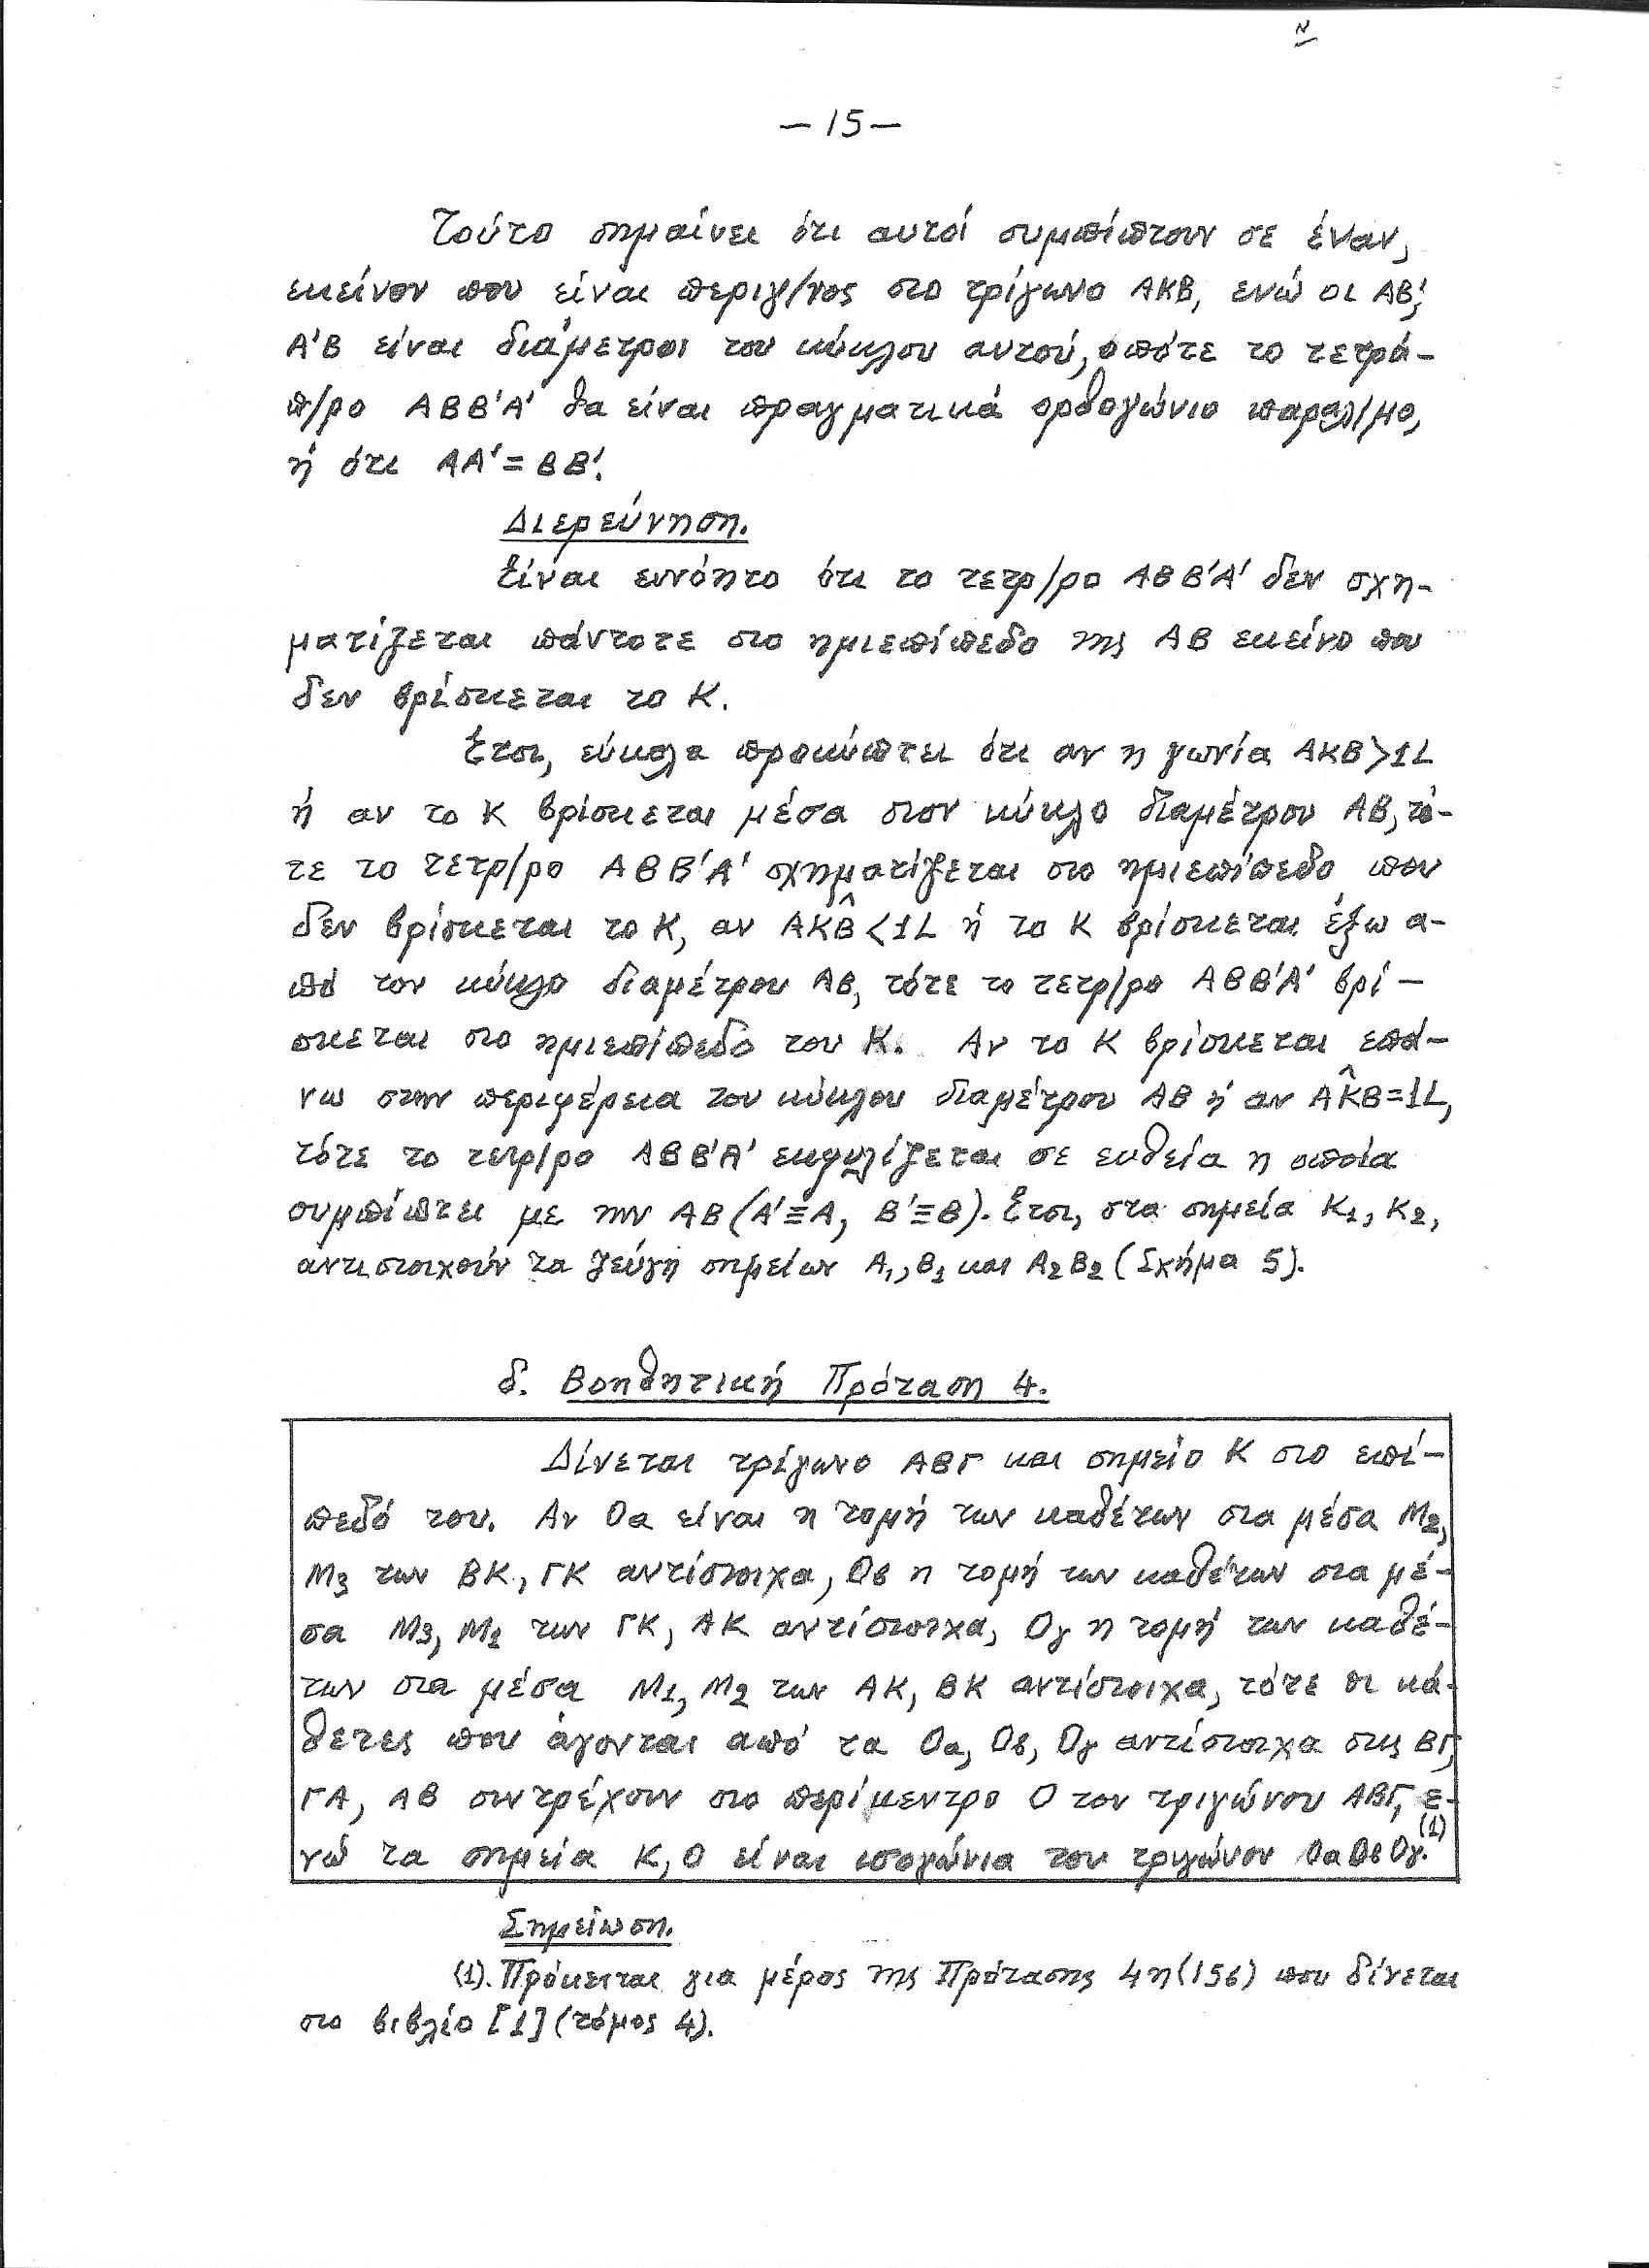 — 15 —
Τούτο σημαίνει ότι αυτοί συμπίπτουν σε έναν,
εκείνον που είναι περιγ/νος στο τρίγωνο ΑΚΒ, ενώ οι ΑΒ',
Α'Β είναι διάμετροι του κύκλου αυτού, οπότε το τετρά-
π/ρο ΑΒΒ'Α' θα είναι πραγματικά ορθογώνιο παραλ/μο,
ή ότι ΑΑ'=ΒΒ'.
Διερεύνηση.
Είναι ευνόητο ότι το τετρ/ρο ΑΒΒ'Α' δεν σχη-
ματίζεται πάντοτε στο ημιεπίπεδο της ΑΒ εκείνο που
δεν βρίσκεται το Κ.
Έτσι, εύκολα προκύπτει ότι αν η γωνία ΑΚΒ>1L
ή αν το Κ βρίσκεται μέσα στον κύκλο διαμέτρου ΑΒ, τό-
τε το τετρ/ρο ΑΒΒ'Α' σχηματίζεται στο ημιεπίπεδο που
δεν βρίσκεται το Κ, αν ΑΚ̂Β<1L ή το Κ βρίσκεται έξω α-
πό τον κύκλο διαμέτρου ΑΒ, τότε το τετρ/ρο ΑΒΒ'Α' βρί-
σκεται στο ημιεπίπεδο του Κ. Αν το Κ βρίσκεται επά-
νω στην περιφέρεια του κύκλου διαμέτρου ΑΒ ή αν ΑΚ̂Β=1L,
τότε το τετρ/ρο ΑΒΒ'Α' εκφυλίζεται σε ευθεία η οποία
συμπίπτει με την ΑΒ (Α'≡Α, Β'≡Β). Έτσι, στα σημεία Κ₁, Κ₂,
αντιστοιχούν τα ζεύγη σημείων Α₁,Β₁ και Α₂Β₂ (Σχήμα 5).
δ. Βοηθητική Πρόταση 4.
Δίνεται τρίγωνο ΑΒΓ και σημείο Κ στο επί-
πεδό του. Αν Οα είναι η τομή των καθέτων στα μέσα Μ₂,
Μ₃ των ΒΚ, ΓΚ αντίστοιχα, Οβ η τομή των καθέτων στα μέ-
σα Μ₃, Μ₁ των ΓΚ, ΑΚ αντίστοιχα, Ογ η τομή των καθέ-
των στα μέσα Μ₁, Μ₂ των ΑΚ, ΒΚ αντίστοιχα, τότε οι κά-
θετες που άγονται από τα Οα, Οβ, Ογ αντίστοιχα στις ΒΓ,
ΓΑ, ΑΒ συντρέχουν στο περίκεντρο Ο του τριγώνου ΑΒΓ, ε-
νώ τα σημεία Κ, Ο είναι ισογώνια του τριγώνου ΟαΟβΟγ.⁽¹⁾
Σημείωση.
(1). Πρόκειται για μέρος της Πρότασης 4η(156) που δίνεται
στο βιβλίο [1] (τόμος 4).